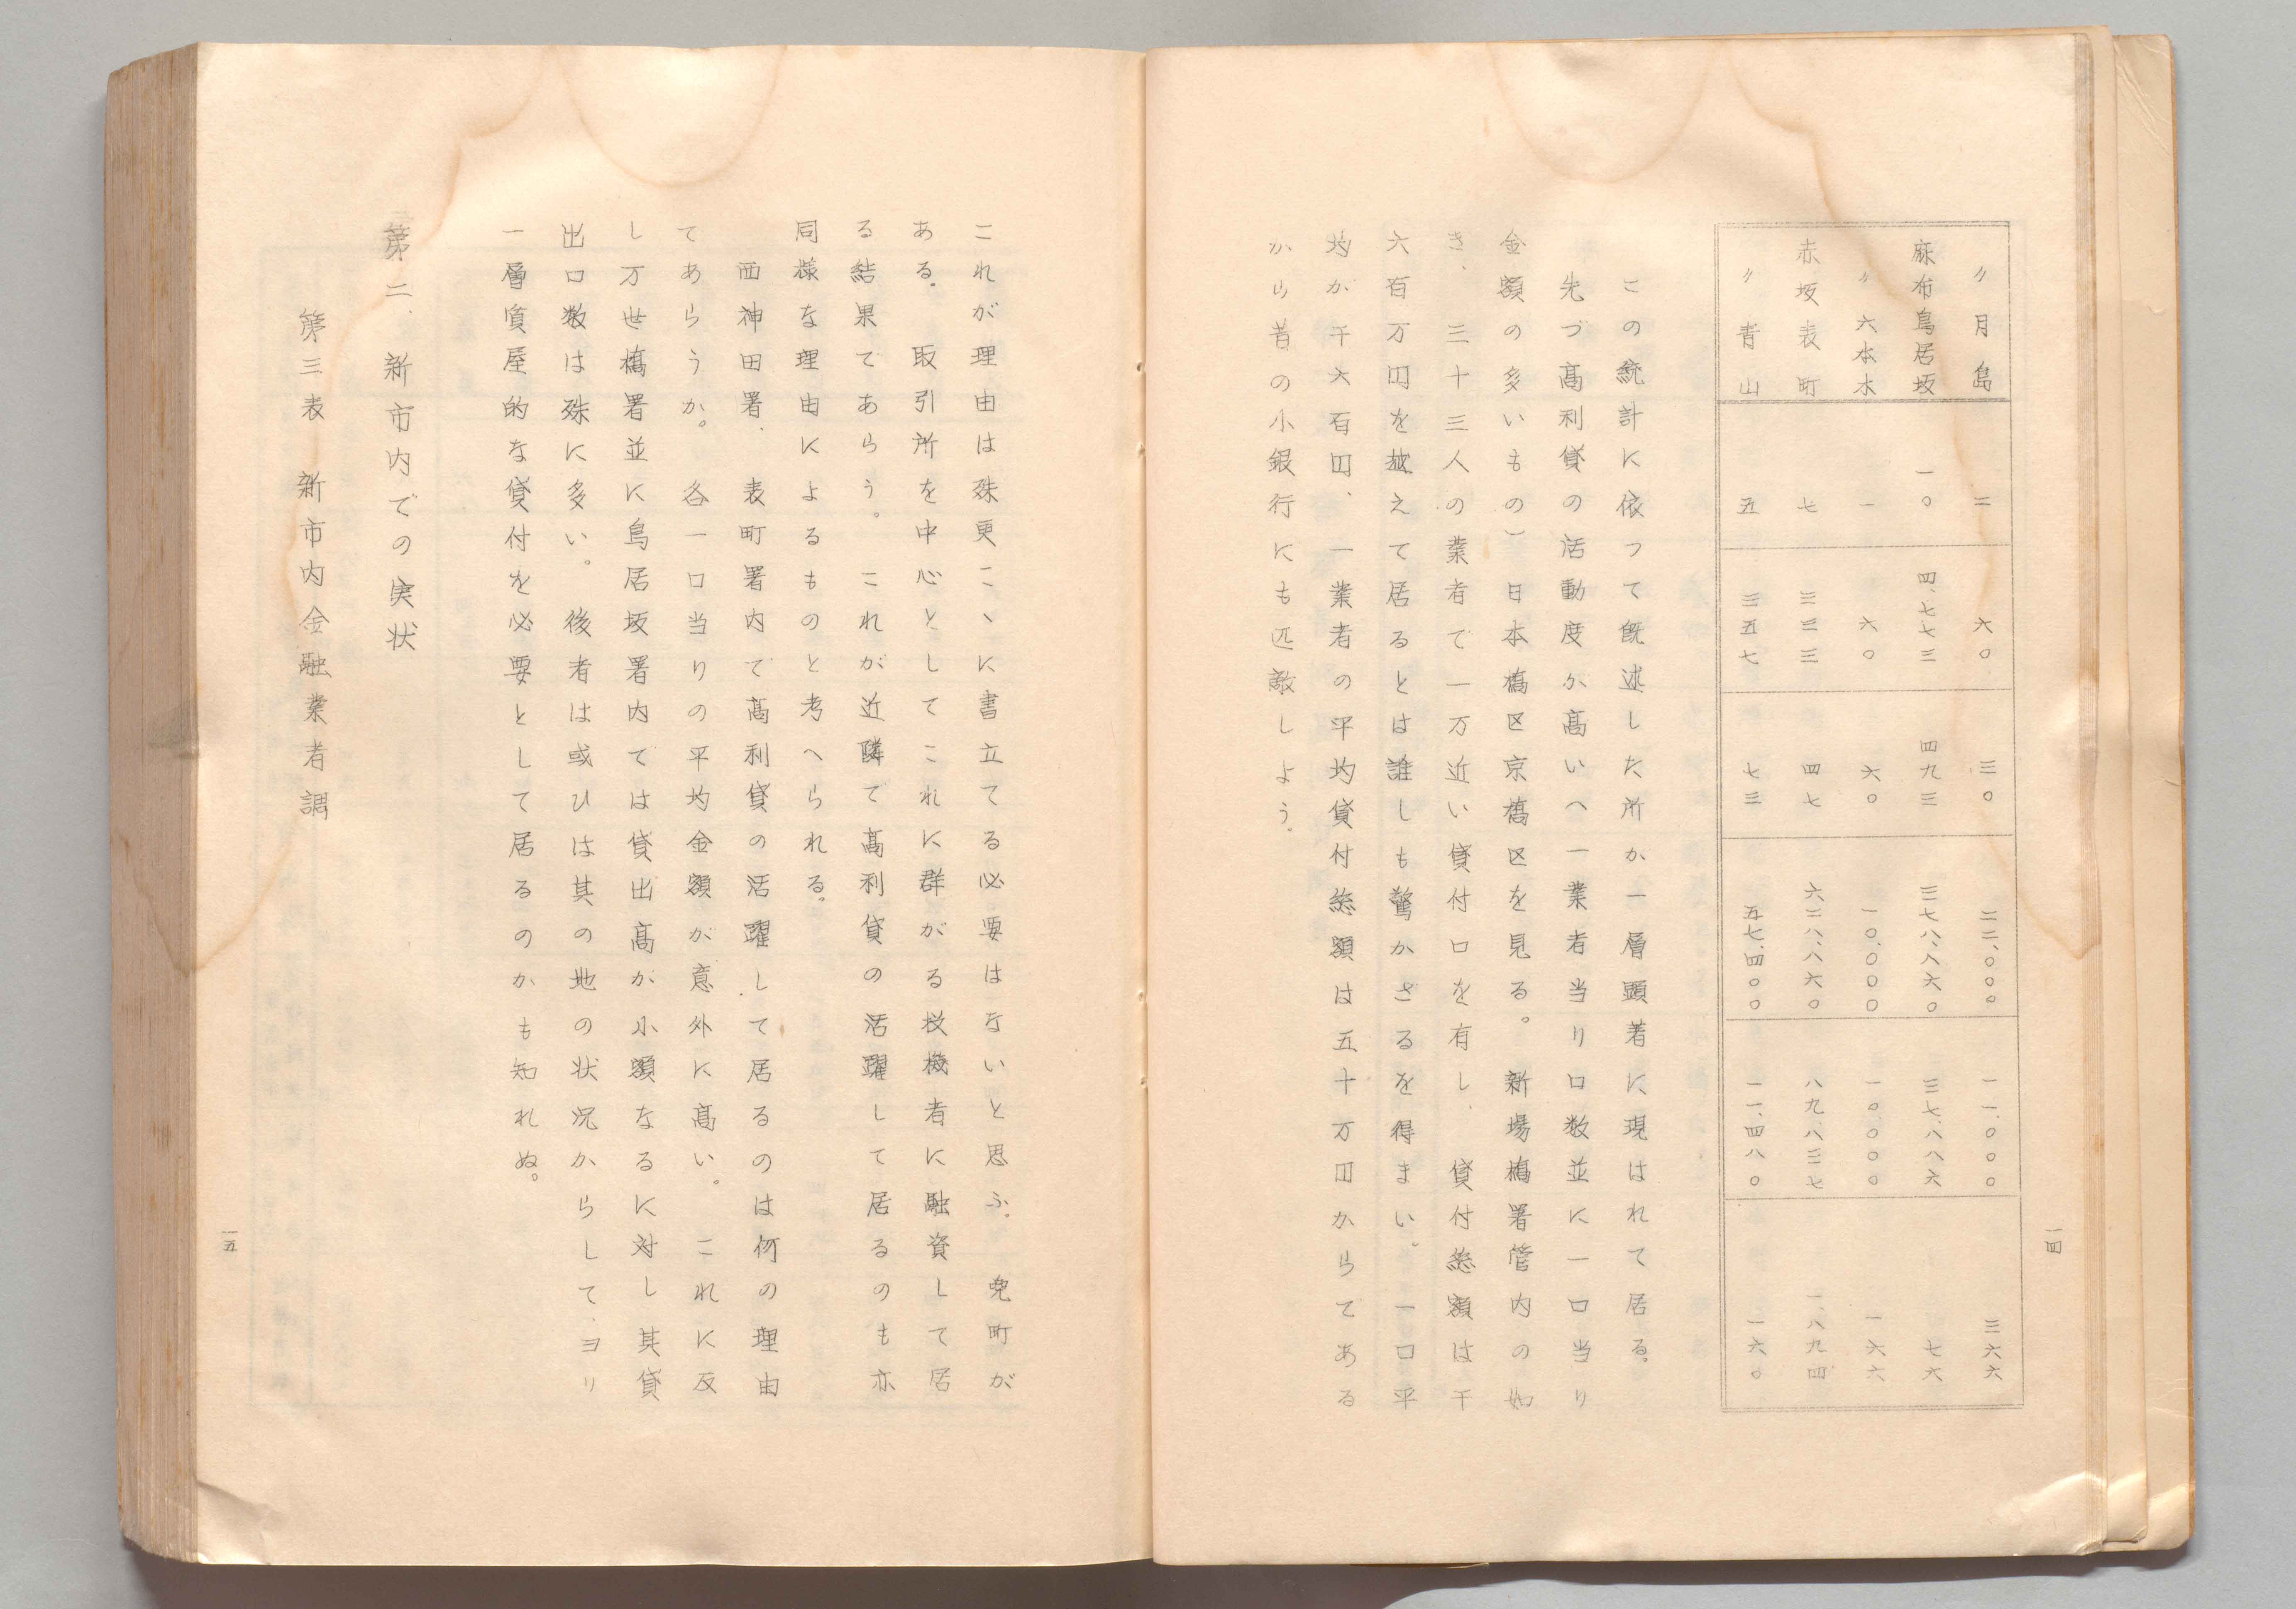 一四
〃月島 二 六〇 三〇 二二、〇〇〇 一一、〇〇〇 三六六
麻布鳥居坂 一〇 四、七七三 四九三 三七八、八六〇 三七、八八六 七六
〃六本木 一 六〇 六〇 一〇、〇〇〇 一〇、〇〇〇 一六六
赤坂表町 七 三三三 四七 六二八、八六〇 八九、八三七 一、八九四
〃青山 五 三五七 七三 五七、四〇〇 一一、四八〇 一六〇
この統計に依つて既述した所か一層顕著に現はれて居る。
先づ高利貸の活動度か高い(一業者当り口数並に一口当り
金額の多いもの)日本橋区京橋区を見る。新場橋署管内の如
き、三十三人の業者で一万近い貸付口を有し、貸付総額は千
六百万円を越えて居るとは誰しも驚かざるを得まい。一口平
均が千六百円、一業者の平均貸付総額は五十万円からてある
から昔の小銀行にも匹敵しよう。
これが理由は殊更こヽに書立てる必要はないと思ふ。兜町が
ある。取引所を中心としてこれに群がる投機者に融資して居
る結果であらう。これが近隣で高利貸の活躍して居るのも亦
同様な理由によるものと考へられる。
西神田署、表町署内で高利貸の活躍して居るのは何の理由
てあらうか。各一口当りの平均金額が意外に高い。これに反
し万世橋署並に鳥居坂署内では貸出高が小額なるに対し其貸
出口数は殊に多い。後者は或ひは其の地の状況からして、ヨリ
一層質屋的な貸付を必要として居るのかも知れぬ。
第二、新市内での実状
第三表 新市内金融業者調
一五